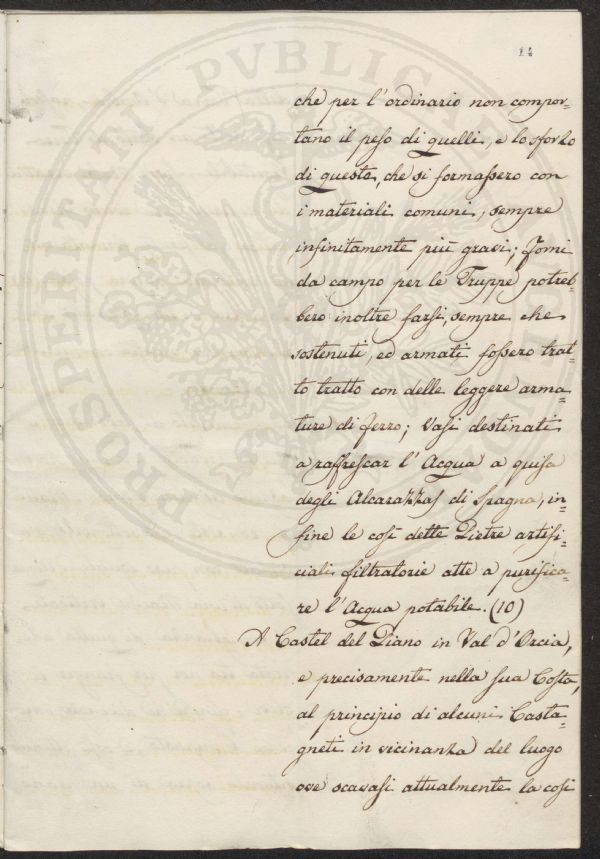 14
che per l'ordinario non compor=
tano il peso di quelli, e lo sforzo
di questa, che si formassero con
i materiali comuni, sempre
infinitamente più gravi; Forni
da campo per le Truppe potreb=
bero inoltre farsi, sempre che
sostenuti, ed armati fossero trat=
to tratto con delle leggere arma=
ture di ferro; Vasi destinati
a raffrescar l'Acqua a guisa
degli Alcarazzas di Spagna, in=
fine le così dette Pietre artifi=
ciali filtratorie atte a purifica=
re l'Acqua potabile. (10)
A Castel del Piano in Val d'Orcia,
e precisamente nella sua Costa,
al principio di alcuni Casta=
gneti in vicinanza del luogo
ove scavasi attualmente la così
PROSPERITATI PVBLICAE